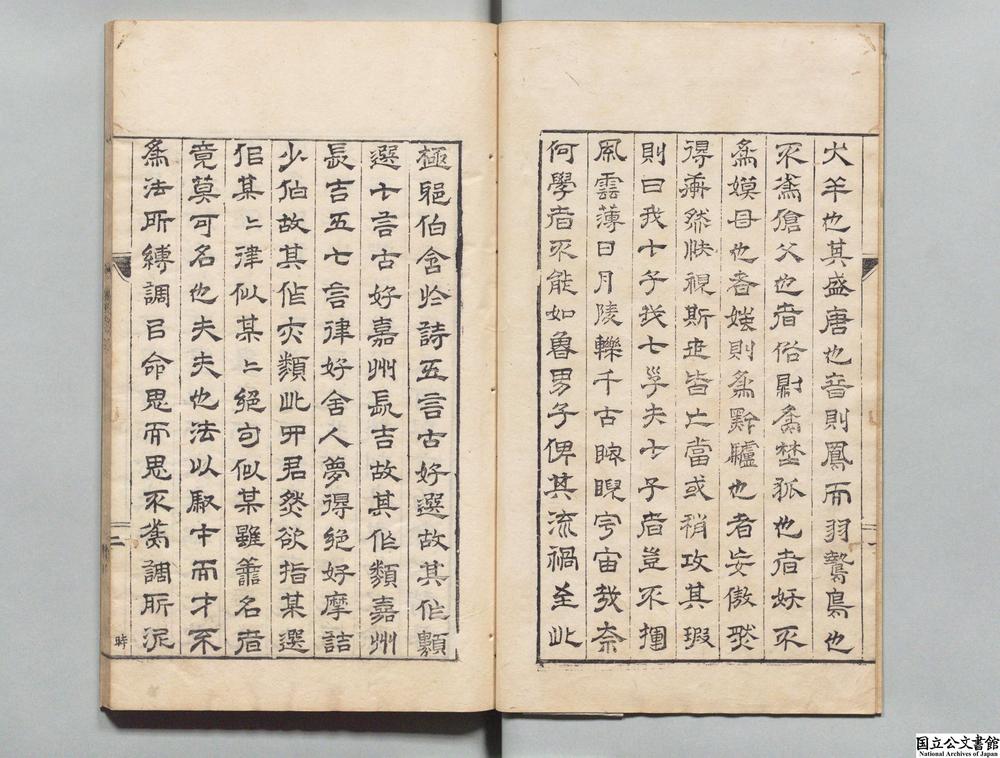 犬羊也其盛唐也音則鳳而羽鷙鳥也
不爲傖父也者俗尉爲埜狐也者妖不
爲嫫母也者媸則爲黔驢也者妄傲然
得
則曰我七子我七子夫七子者豈不揮
風雲薄日月陵轢千古睥睨宇宙哉柰
何學者不能如魯男子俾其流禍至此
極駞伯含於詩五言古好選故其作類
選七言古好嘉州長吉故其作類嘉州
長吉五七言律好舍人夢得絕好摩詰
少伯故其作亦類此卬君然欲指某選
佀某某律似某某絕句似某雖善名者
竟莫可名也夫夫也法以馭中而才不
爲法所縛調以命思而思不爲調所泥
二
時
国立公文書館
National Archives of Japan